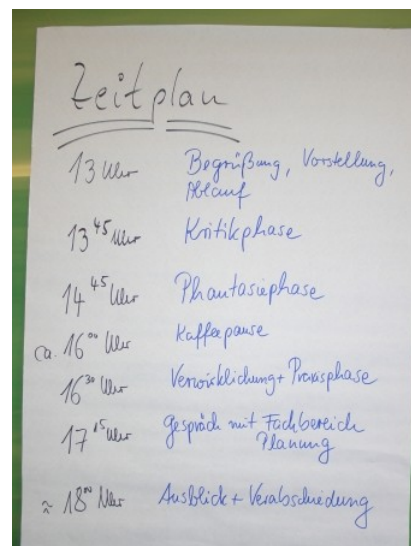 Zeitplan
13 Uhr Begrüßung, Vorstellung,
Ablauf
13 45 Uhr Kritikphase
14 45 Uhr Phantasiephase
ca. 16 00 Uhr Kaffeepause
16 30 Uhr Verwirklichung + Praxisphase
17 15 Uhr Gespräch mit Fachbereich
Planung
≈ 18 00 Uhr Ausblick + Verabschiedung